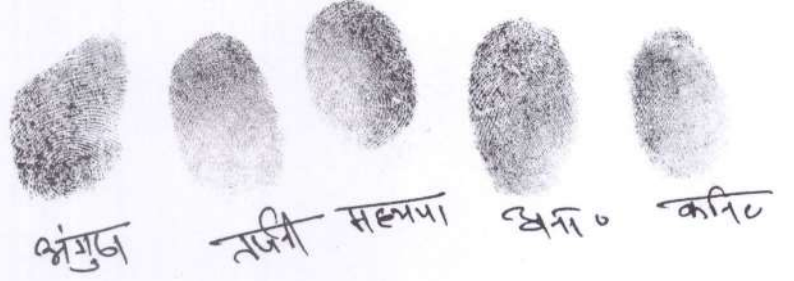 अंगुठा तर्जनी मध्यमा अना० कनि०